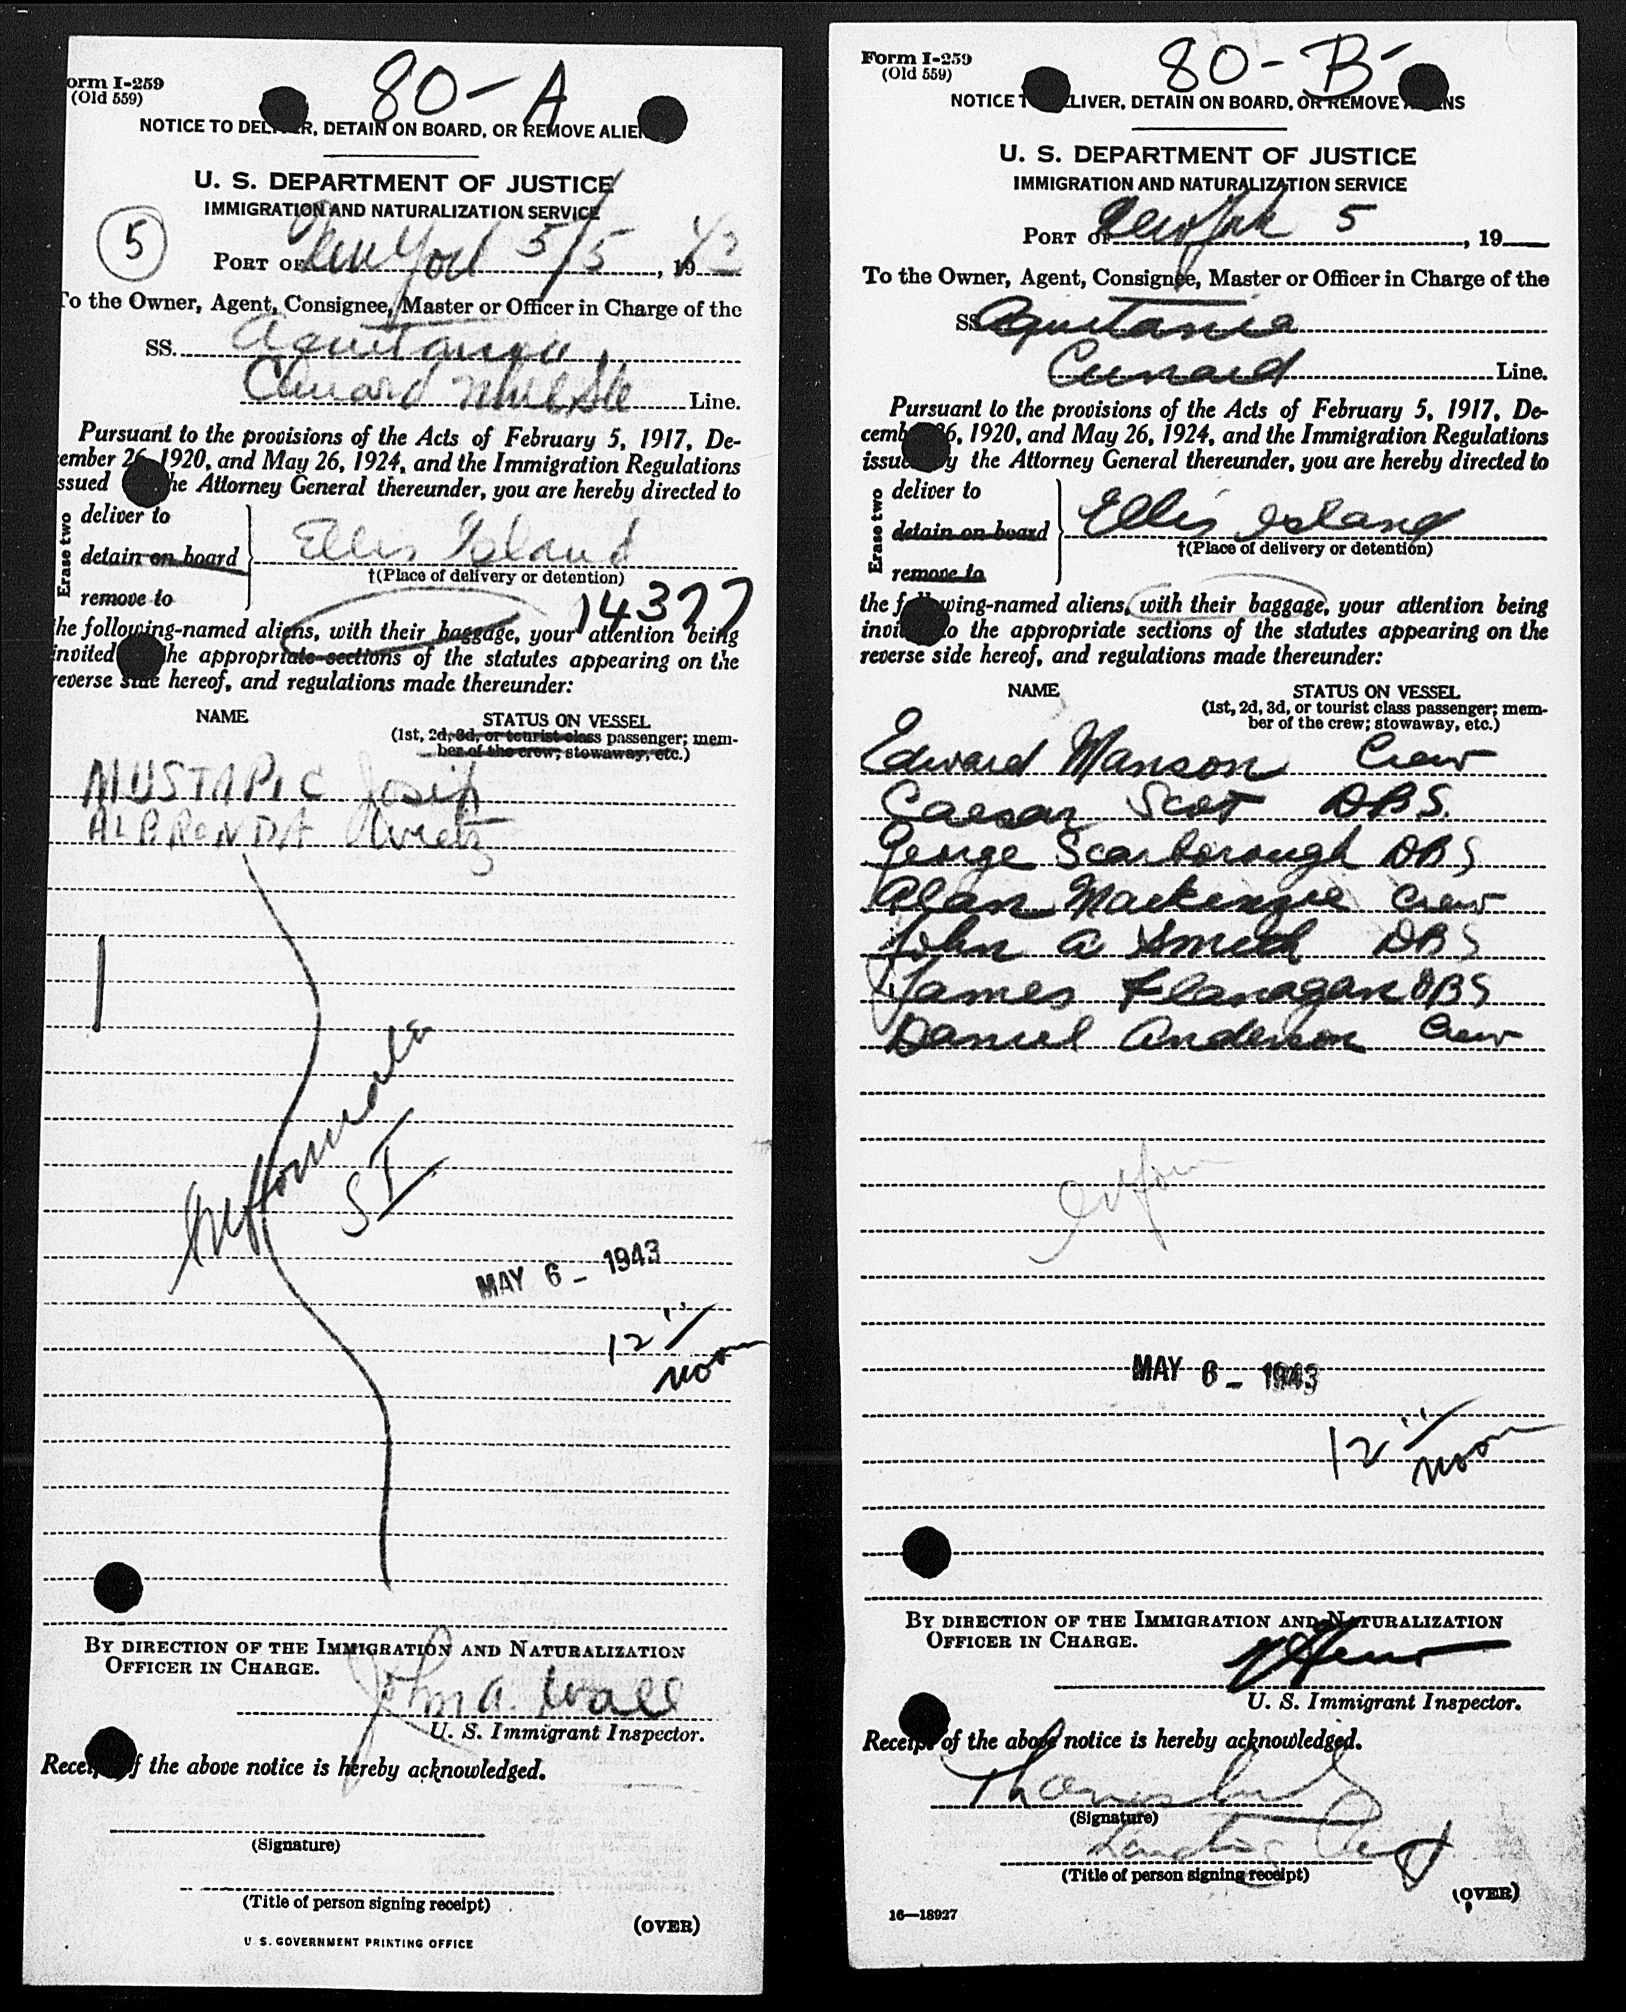 orm I-259
(Old 559)
80-A
NOTICE TO DEL R, DETAIN ON BOARD, OR REMOVE ALIE
U. S. DEPARTMENT OF JUSTICE
IMMIGRATION AND NATURALIZATION SERVICE
5
PORT OF New York 5/5, 1943
To the Owner, Agent, Consignee, Master or Officer in Charge of the
SS. Aquitania
Cunard Line.
Pursuant to the provisions of the Acts of February 5, 1917, De-
ember 26, 1920, and May 26, 1924, and the Immigration Regulations
ssued he Attorney General thereunder, you are hereby directed to
Erase two
deliver to
detain on board
remove to
Ellis Island
†(Place of delivery or detention)
14377
he following-named aliens, with their baggage, your attention being
invited the appropriate sections of the statutes appearing on the
reverse side hereof, and regulations made thereunder:
NAME
STATUS ON VESSEL
(1st, 2d, 3d, or tourist class passenger; mem-
ber of the crew; stowaway, etc.)
MUSTAPIC Josip
ALBRONDA
SI
MAY 6 - 1943
12 noon
BY DIRECTION OF THE IMMIGRATION AND NATURALIZATION
OFFICER IN CHARGE.
John A. Wall
U. S. Immigrant Inspector.
Recei f the above notice is hereby acknowledged.
(Signature)
(Title of person signing receipt)
(OVER)
U S. GOVERNMENT PRINTING OFFICE
Form I-259
(Old 559)
80-B
NOTICE T LIVER, DETAIN ON BOARD, OR REMOVE NS
U. S. DEPARTMENT OF JUSTICE
IMMIGRATION AND NATURALIZATION SERVICE
PORT OF New York 5, 19
To the Owner, Agent, Consignee, Master or Officer in Charge of the
SS Aquitania
Cunard Line.
Pursuant to the provisions of the Acts of February 5, 1917, De-
cemb 6, 1920, and May 26, 1924, and the Immigration Regulations
issue y the Attorney General thereunder, you are hereby directed to
Erase two
deliver to
detain on board
remove to
Ellis Island
†(Place of delivery or detention)
the f wing-named aliens, with their baggage, your attention being
invi o the appropriate sections of the statutes appearing on the
reverse side hereof, and regulations made thereunder:
NAME
STATUS ON VESSEL
(1st, 2d, 3d, or tourist class passenger; mem-
ber of the crew; stowaway, etc.)
Edward Manson Crew
Caesar Scot DBS.
George Scarborough DBS
Alan Mackenzie Crew
John A Smith DBS
James Flanagan DBS
Daniel Anderson Crew
MAY 6 - 1943
12 noon
BY DIRECTION OF THE IMMIGRATION AND NATURALIZATION
OFFICER IN CHARGE.
U. S. Immigrant Inspector.
Receipt of the above notice is hereby acknowledged.
(Signature)
(Title of person signing receipt)
(OVER)
16—18927